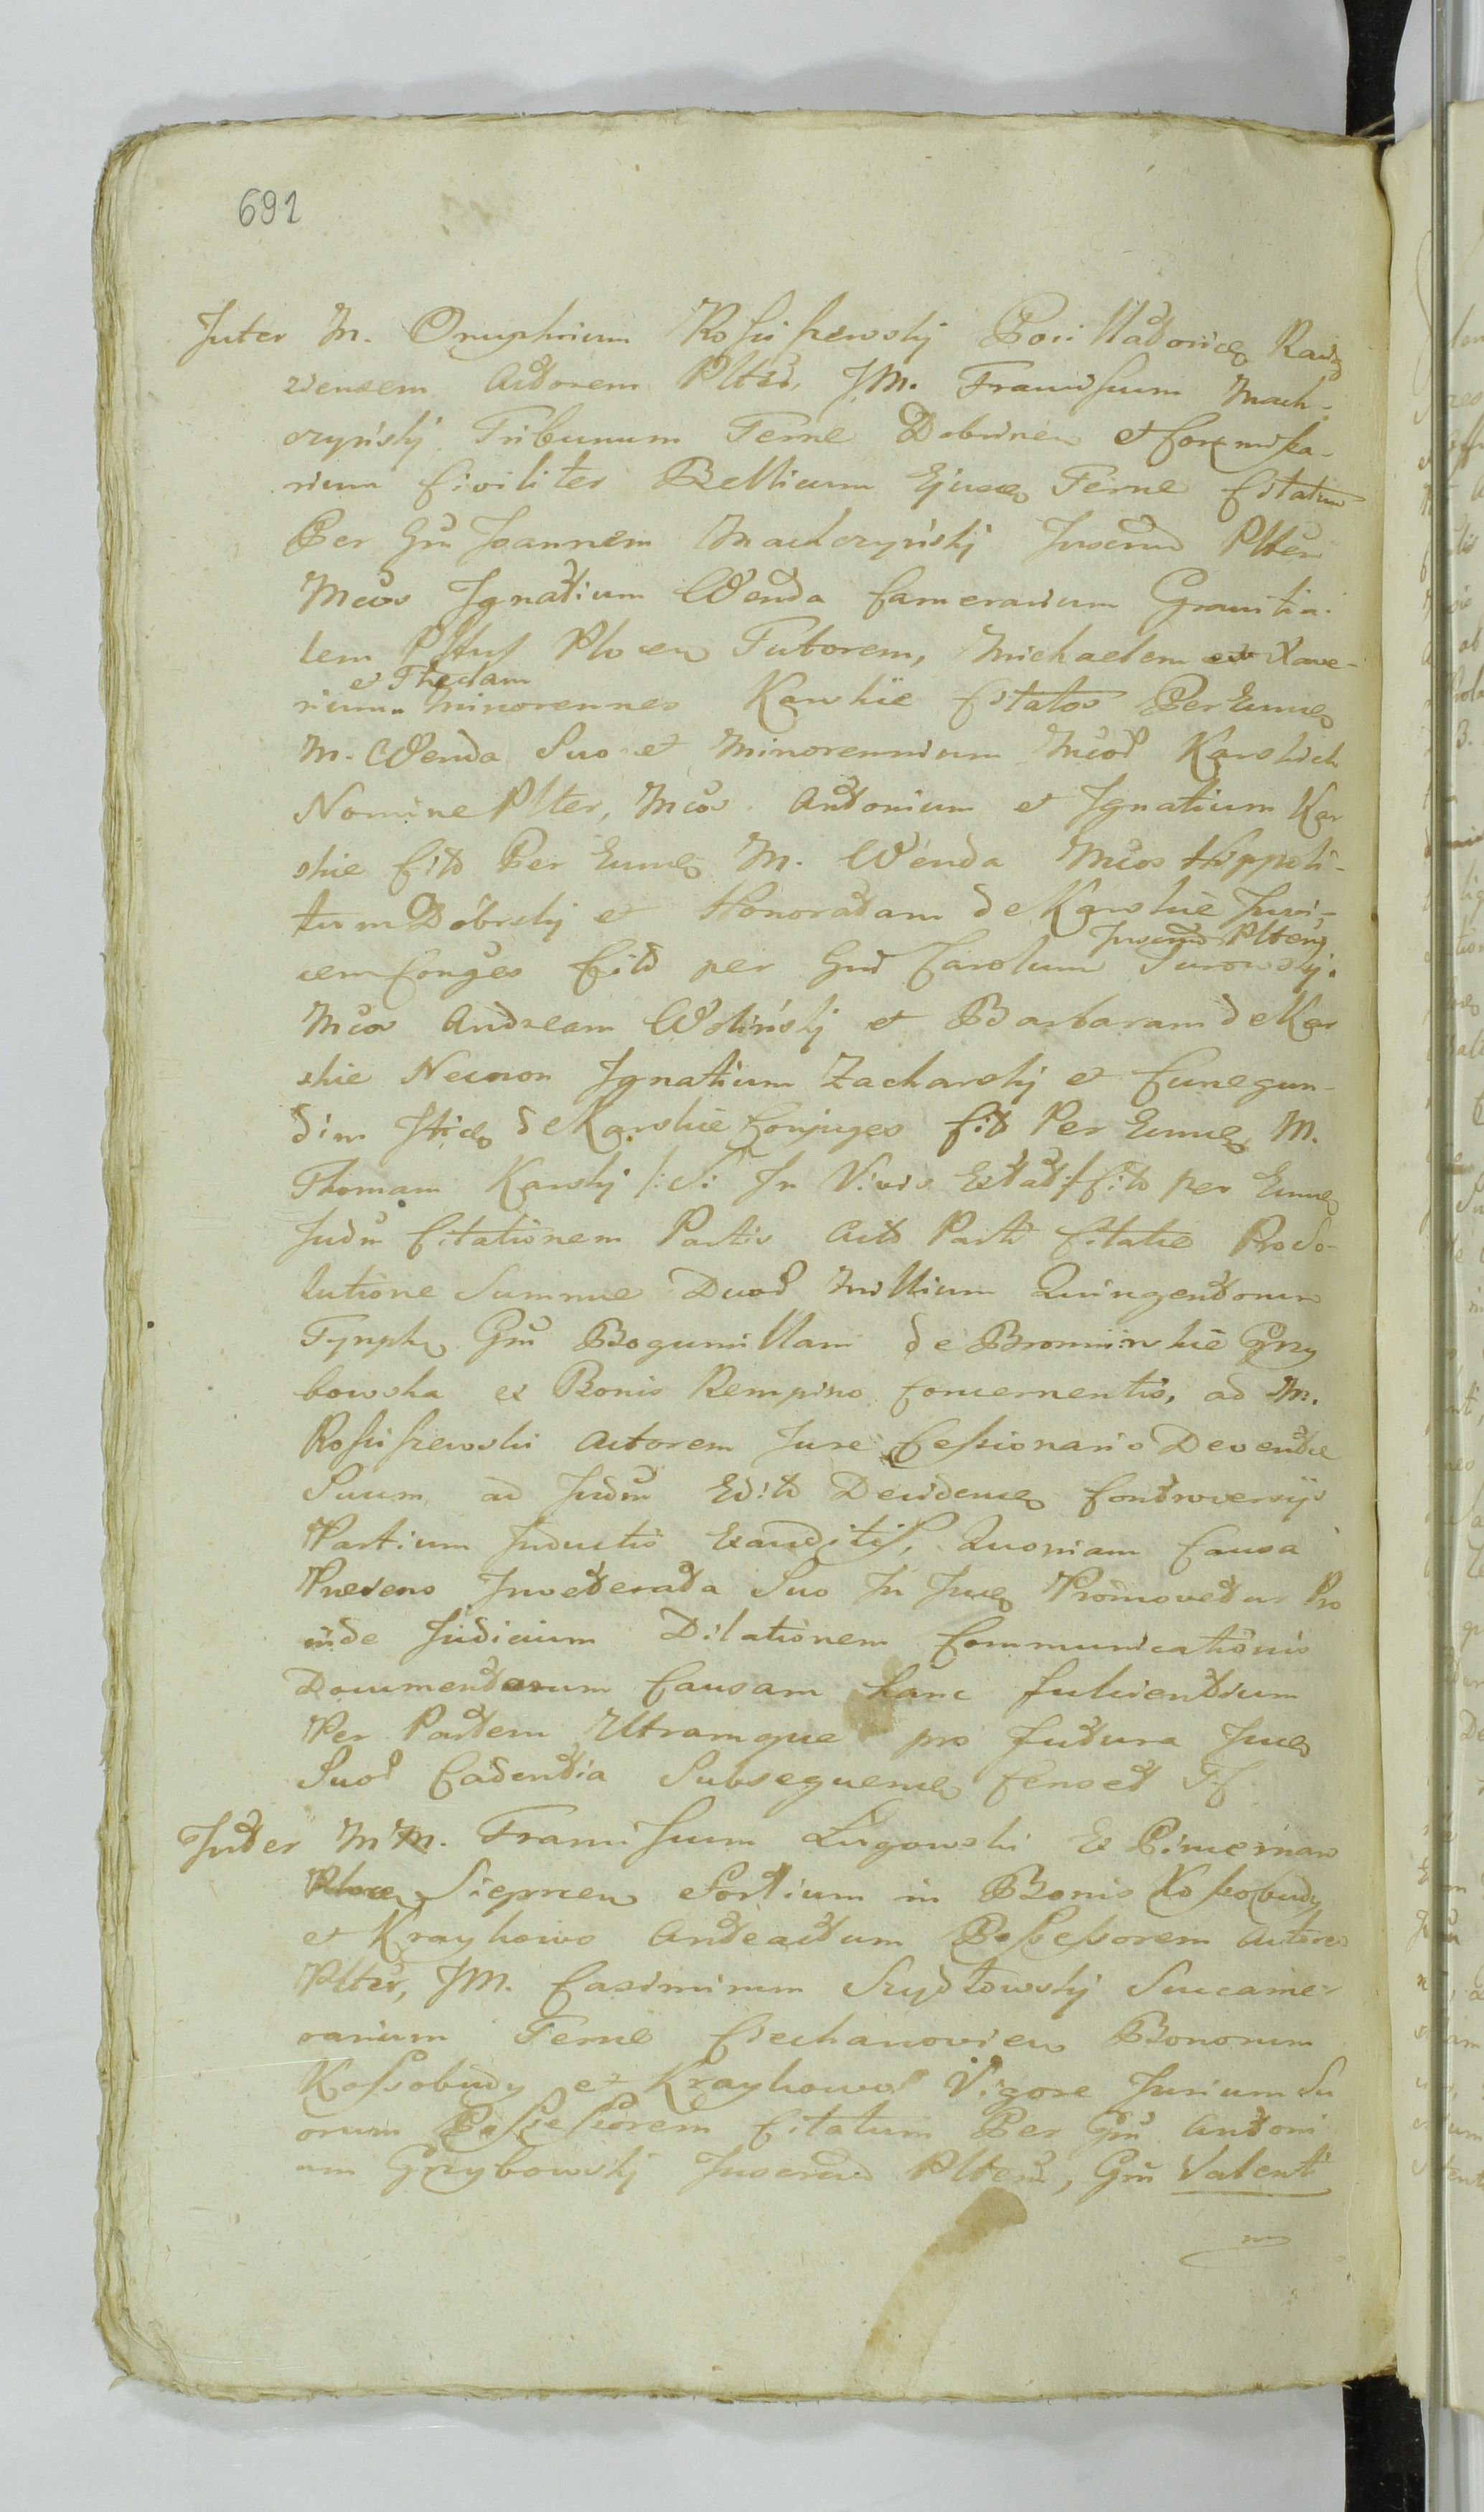 691
Inter M. Onuphrium Rościszewskj Pocillatorice Raci
ziensem Actorem Pltěr, JM. Franciscum Mach-
czyńskj Tribunum Terrae Dobrinen et Commissa-
rium Civiliter Bellicum Ejusce Terrae Citatum
Per Gm Joannem Machczyńskj Juserend Pltěn
Mcos Ignatium Wenda Camerarium Granitia-
lem Plttus Plocen Tutorem, Michaelem et Xave-
et Theclam
rium Minorennes Karskie Citatos Per Eune
M. Wenda Suo et Minorennium Mcor Karskich
Nomine Plter, Mcos Antonium et Ignatium Kar
skie Citt Per Eune M. Wenda Mcos Hippoli-
tum Dobrskj et Honoratam de Karskie Juvi-
Juserend Pltenj
cem Conges Citt per Gm Carolum Surowskj.
Mcos Andream Wolinskj et Barbaram de Kar
skie Necnon Ignatium Zacharskj et Cunegun-
dim Itice de Karskie Conjuges Citt Per Eune M.
Thomam Karskj /:Si In Vivis Extat:/ Citt per Eune
Judm Citationem Partis Act Parti Citatae Pro So-
lutione Summae Duor Millium Quingentorum
Tynph Gm Bogumillam de Brominskie Grzy
bowska ex Bonis Rempino Concernentis, ad M.
Rościszewski Actorem Jure Cessionario Deventae
Suum ad Judm Editt Decidence Controversijs
Partium Inductis Exauditis, Quoniam Causa
Praesens Inveterata Suo In June Promovetur Pro
inde Judicium Dilationem Communicationis
Documentorum Causam hanc fulcientium
Per Partem Utramque pro futura June
Suor Cadentia Subsequence Censet Tf.
Inter MM. Franciscum Lugowski Ex Pincernam
Siepnen Sortium in Bonis Kossobudy
et Kraykowo Anteactum Possessorem Actorem
Pltěr, JM. Casimirum Szydłowskj Succame-
rarium Terrae Ciechanovien Bonorum
Kossobudy et Kraykowo Vigore Jurium Su
orum Possessorem Citatum Per Gm Antoni
um Grzybowskj Juserend Pltěn, Gm Valenti